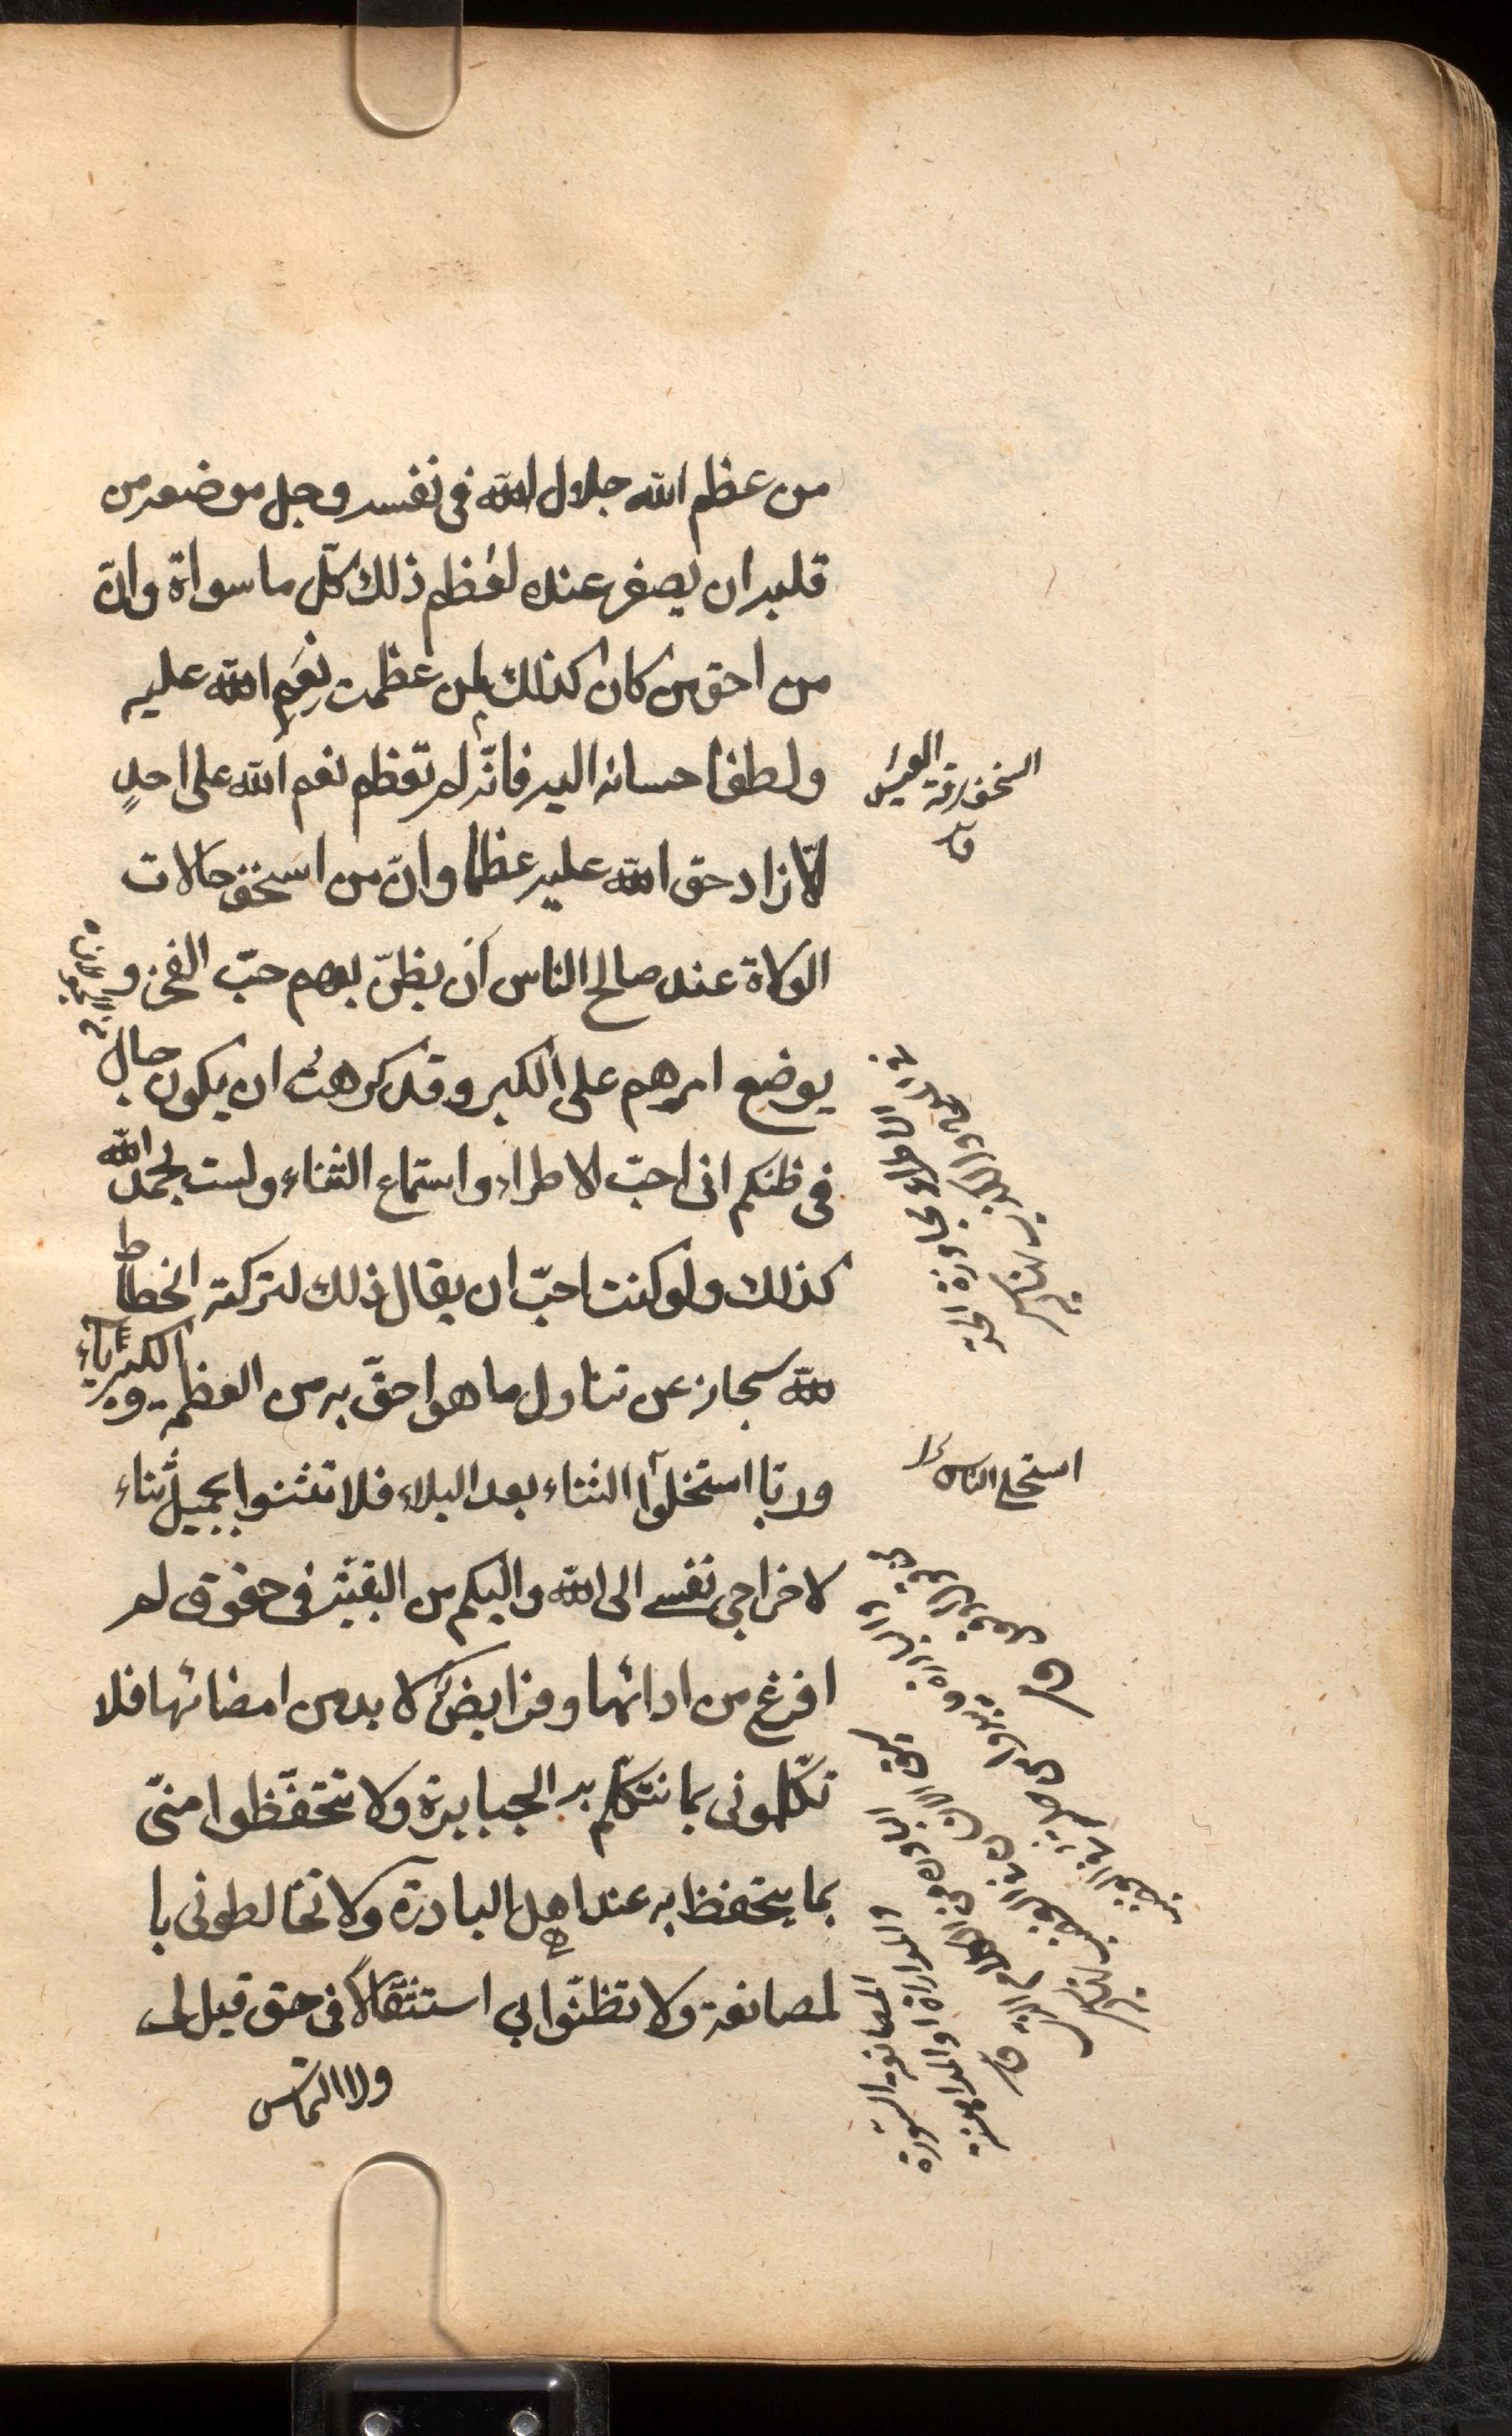 من عظم الله جلال الله فى نفسه وجل موضعه من
قلبه ان يصغر عنده لعُظم ذلك كلّ ما سواه وانّ
من احق من كان كذلك لمن عظمت نِعَم الله عليه
ولطف احسانه اليه فانّه لم تعظم نعم الله على احدٍ
الّا زاد حق الله عليه عظما وانّ من اسخف حالات
الولاة عند صالح الناس أن يظنّ بهم حبّ الفخر و
يوضع امرهم على الكبر وقد كرهتُ ان يكون جال
فى ظنكم انى احبّ الاطراء واستماع الثناء ولست بحمد الله
كذلك ولو كنت احبّ ان يقال ذلك لتركته انحطاطا
لله سبحانه عن تناول ما هو احقّ به من العظمة والكبرياء
وربما استحلوا الثناء بعد البلاء فلا تثنوا بجميل ثناء
لاخراجى نفسى الى الله واليكم من البقية فى حقوق لم
افرغ من ادائها وفرايض لا بد من امضائها فلا
تكلمونى بما تتكلّم به الجبابرة ولا تتحفّظوا منّى
بما يتحفظ به عند اهل البادرة ولا تخالطونى با
لمصانعة ولا تظنّوا بى استثقالًا فى حق قيل لى
ولا التماس
السخف رقة العيش
استحلى الناس
المصانعة الرشوة
والمداراة او المداهنة